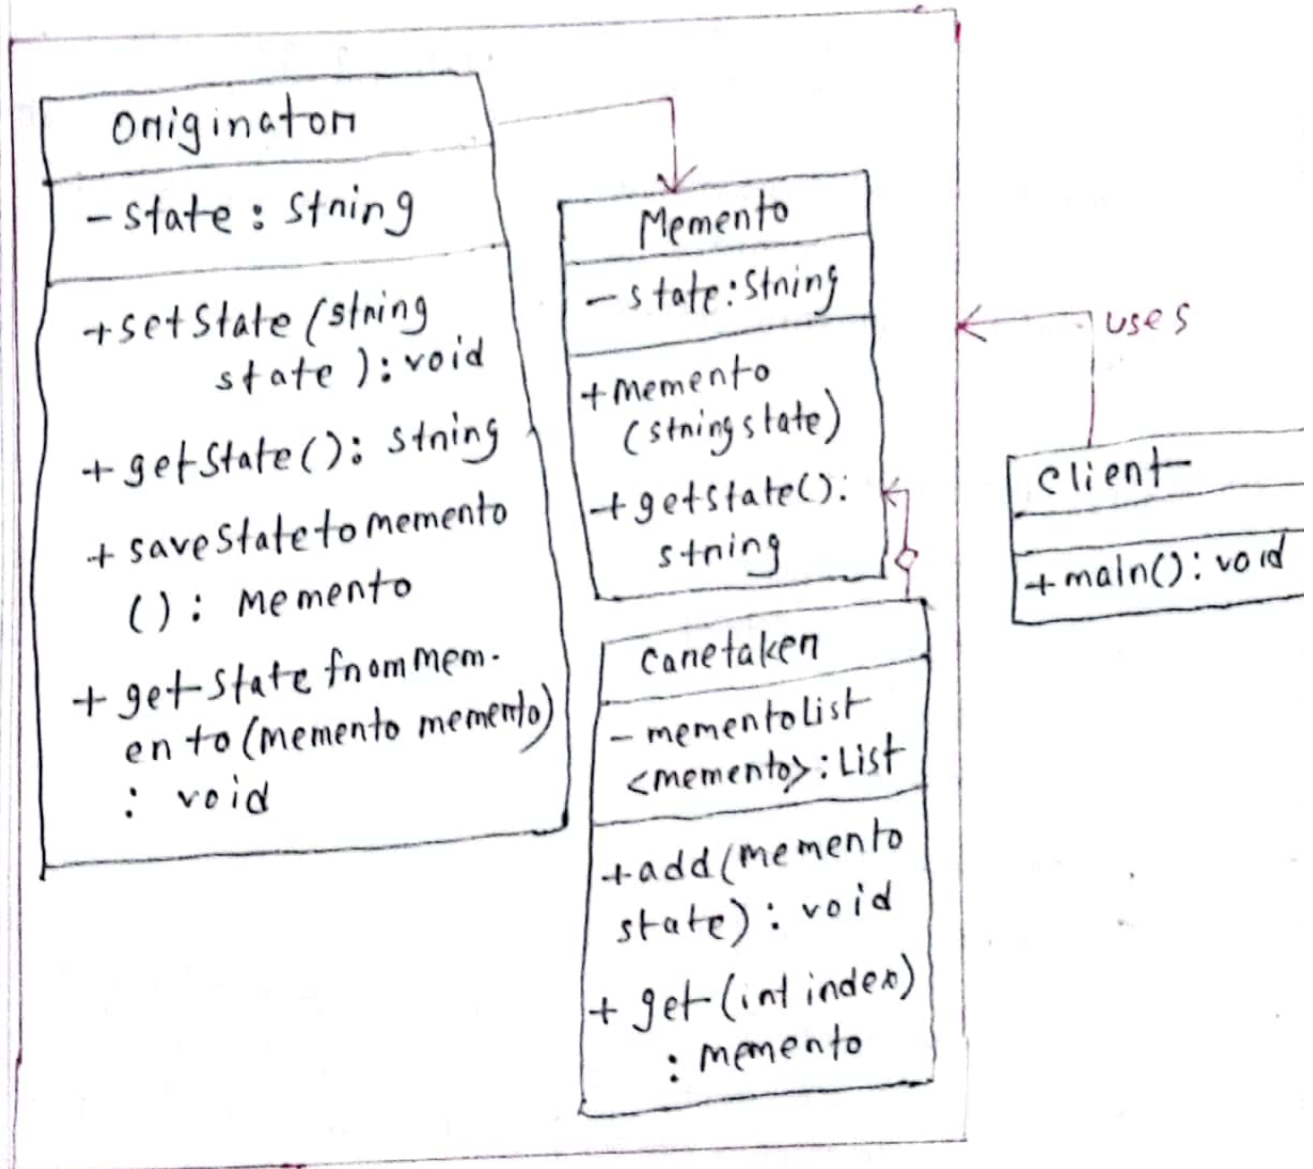 Originator
- state : String
+ setState (string
state ) : void
+ getState () : string
+ saveStatetomemento
() : Memento
+ getStatefrommem-
ento (memento memento)
: void
Memento
- state : String
+ memento
(string state)
+ getstate() :
string
Caretaker
- mementoList
<memento> : List
+ add (memento
state) : void
+ get (int index)
: memento
uses
client
+ main() : void